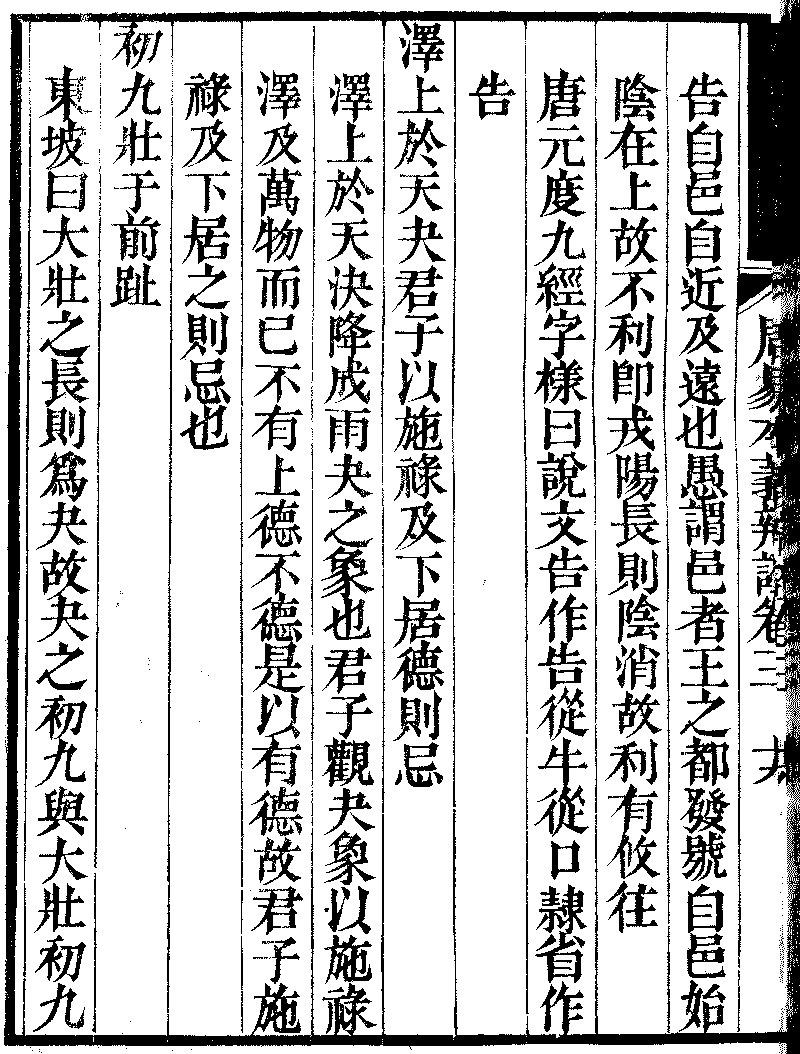 告自邑自近及遠也愚謂邑者王之都發號自邑始
陰在上故不利卽戎陽長則陰消故利有攸往
唐元度九經字樣曰說文告作告從牛從口隷省作
告
澤上於天夬君子以施祿及下居德則忌
澤上於天決降成雨夬之象也君子觀夬象以施祿
澤及萬物而已不有上德不德是以有德故君子施
祿及下居之則忌也
初九壯于前趾
東坡曰大壯之長則爲夬故夬之初九與大壯初九